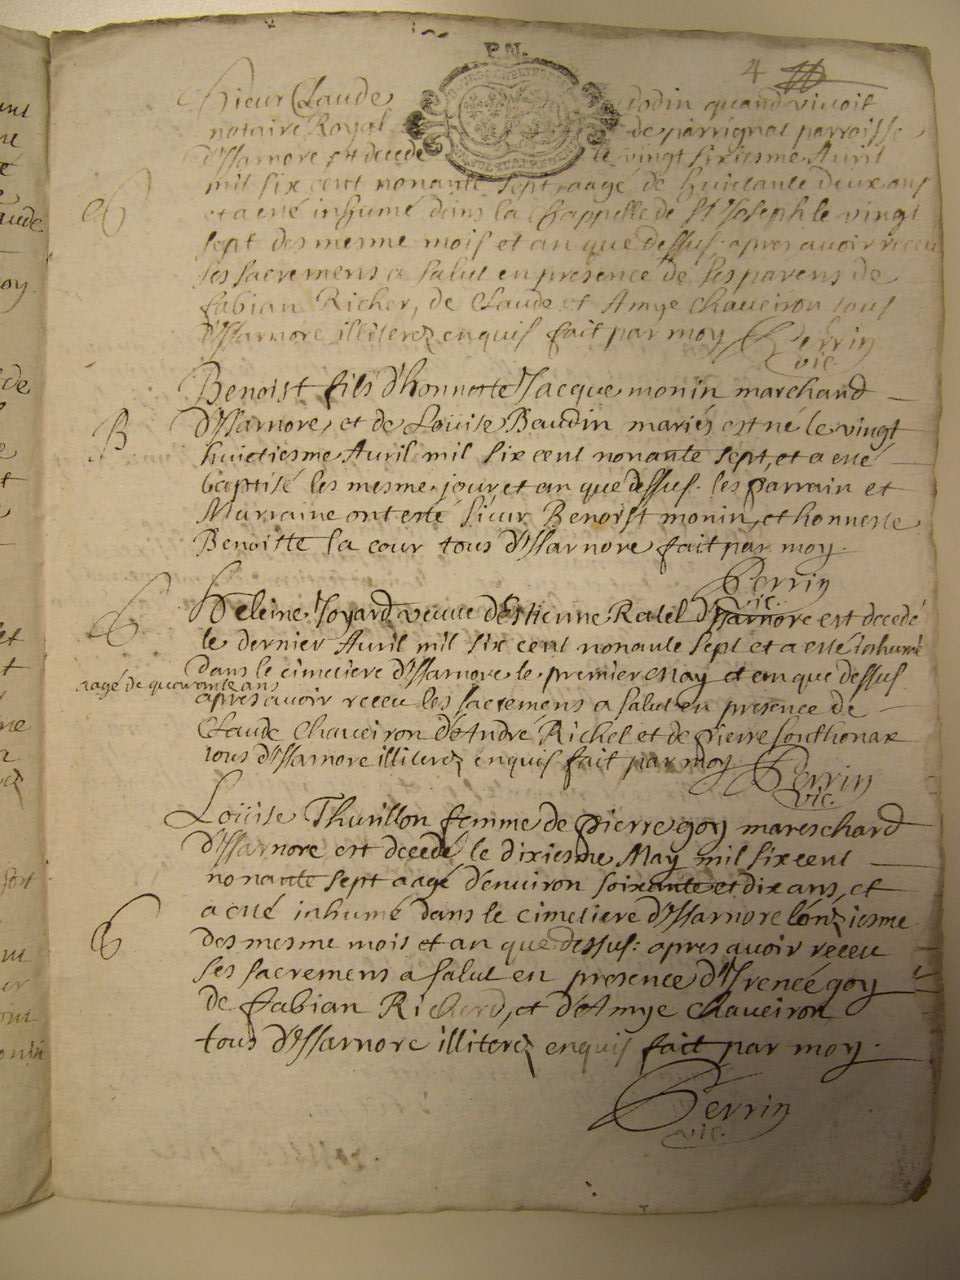 P.N.
4
Sieur Claude dodin quand vivoit
notaire Royal de parrignat parroisse
d'Issarnore est decede le vingt sixiesme Avril
mil six cent nonante sept, aagé de huictante deux ans
et a esté inhumé dans la chappelle de St Joseph le vingt
sept des mesme mois et an que dessus: apres avoir receu
ses sacremens a salut en presence de ses parens de
fabian Richer, de Claude et Amye chaveiron tous
d'Issarnore illiterez enquis fait par moy Perrin
vic.
B
Benoist fils d'honneste Jacque monin marchand
d'Issarnore, et de Loüise Beaudin mariés est né le vingt
huictiesme Avril mil six cent nonante sept, et a esté
baptisé les mesme jour et an que dessus. les parrain et
Marraine ont esté sieur Benoist monin, et honneste
Benoitte la cour tous d'Issarnore fait par moy.
Perrin
vic.
Heleine Joyard veuve d'Estienne Ratel d'Issarnore est decedé
le dernier Avril mil six cent nonante sept et a esté inhumé
dans le cimetiere d'Issarnore le premier may et an que dessus
aagé de quarante ans
apres avoir receu les sacremens a salut en presence de
Claude Chaveiron d'André Richel et de pierre southonax
tous d'Issarnore illiterez enquis fait par moy Perrin
vic.
Loüise Thurillon femme de pierre goy mareschard
d'Issarnore est decedé le dixiesme May mil six cent
nonante sept aagé d'environ soixante et dix ans, et
a esté inhumé dans le cimetiere d'Issarnore l'onziesme
des mesme mois et an que dessus: apres avoir receu
ses sacremens a salut en presence d'Irencé goy
de fabian Richerd, et d'Amye chaveiron
tous d'Issarnore illiterez enquis fait par moy.
Perrin
vic.